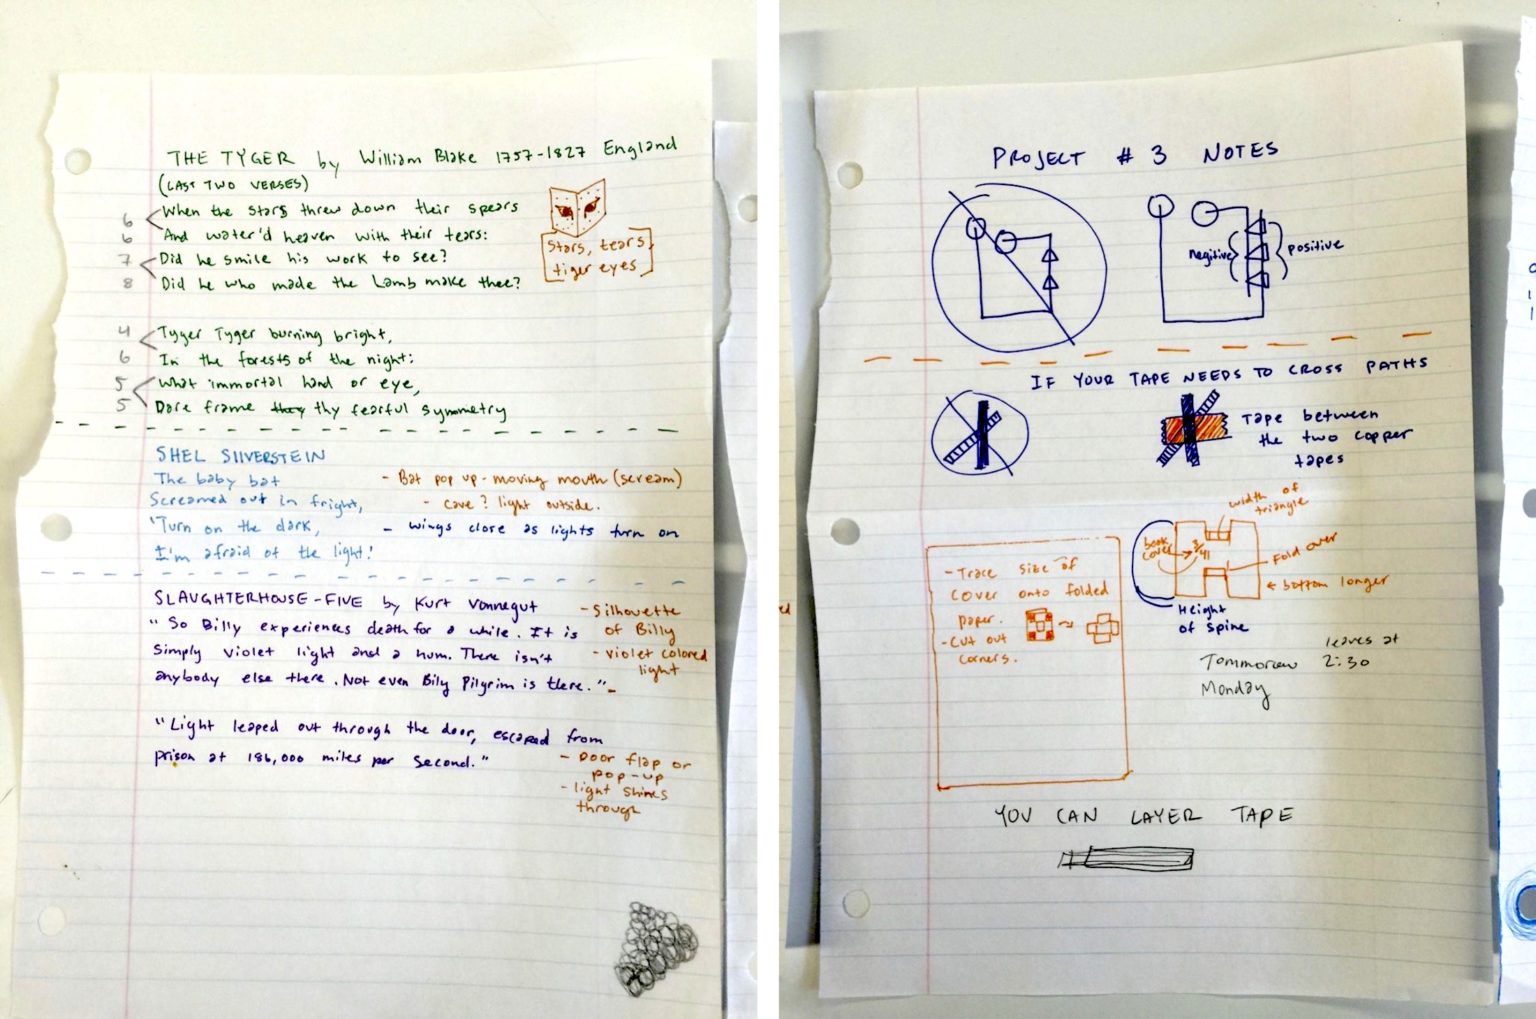 THE TYGER by William Blake 1757-1827 England
(LAST TWO VERSES)
6 When the stars threw down their spears
6 And water'd heaven with their tears:
7 Did he smile his work to see?
8 Did he who made the Lamb make thee?
stars, tears
tiger eyes
4 Tyger Tyger burning bright,
6 In the forests of the night:
5 What immortal hand or eye,
5 Dare frame they thy fearful symmetry
SHEL SILVERSTEIN
The baby bat
Screamed out in fright,
'Turn on the dark,
I'm afraid of the light!
- Bat pop up - moving mouth (scream)
- cave? light outside.
- wings close as lights turn on
SLAUGHTERHOUSE-FIVE by Kurt Vonnegut
"So Billy experiences death for a while. It is
simply violet light and a hum. There isn't
anybody else there. Not even Billy Pilgrim is there."
- Silhouette
of Billy
- violet colored
light
"Light leaped out through the door, escaped from
prison at 186,000 miles per second."
- Door flap or
pop-up
- light shines
through
PROJECT # 3 NOTES
negitive
positive
IF YOUR TAPE NEEDS TO CROSS PATHS
Tape between
the two copper
tapes
width of
triangle
book
cover
3/4"
Fold over
← bottom longer
Height
of spine
- Trace size of
cover onto folded
paper.
- Cut out
corners.
leaves at
Tommorow 2:30
Monday
YOU CAN LAYER TAPE